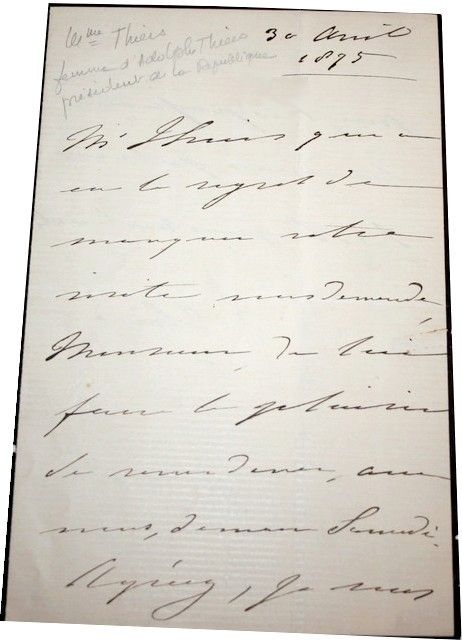 Mme Thiers
femme d'Adolphe Thiers
président de la République
30 Avril
1875
Mr Thiers qui a
eu le regret de
manquer votre
visite vous demande,
Monsieur, de lui
faire le plaisir
de venir diner, avec
nous, demain Samedi.
Agréez, je vous